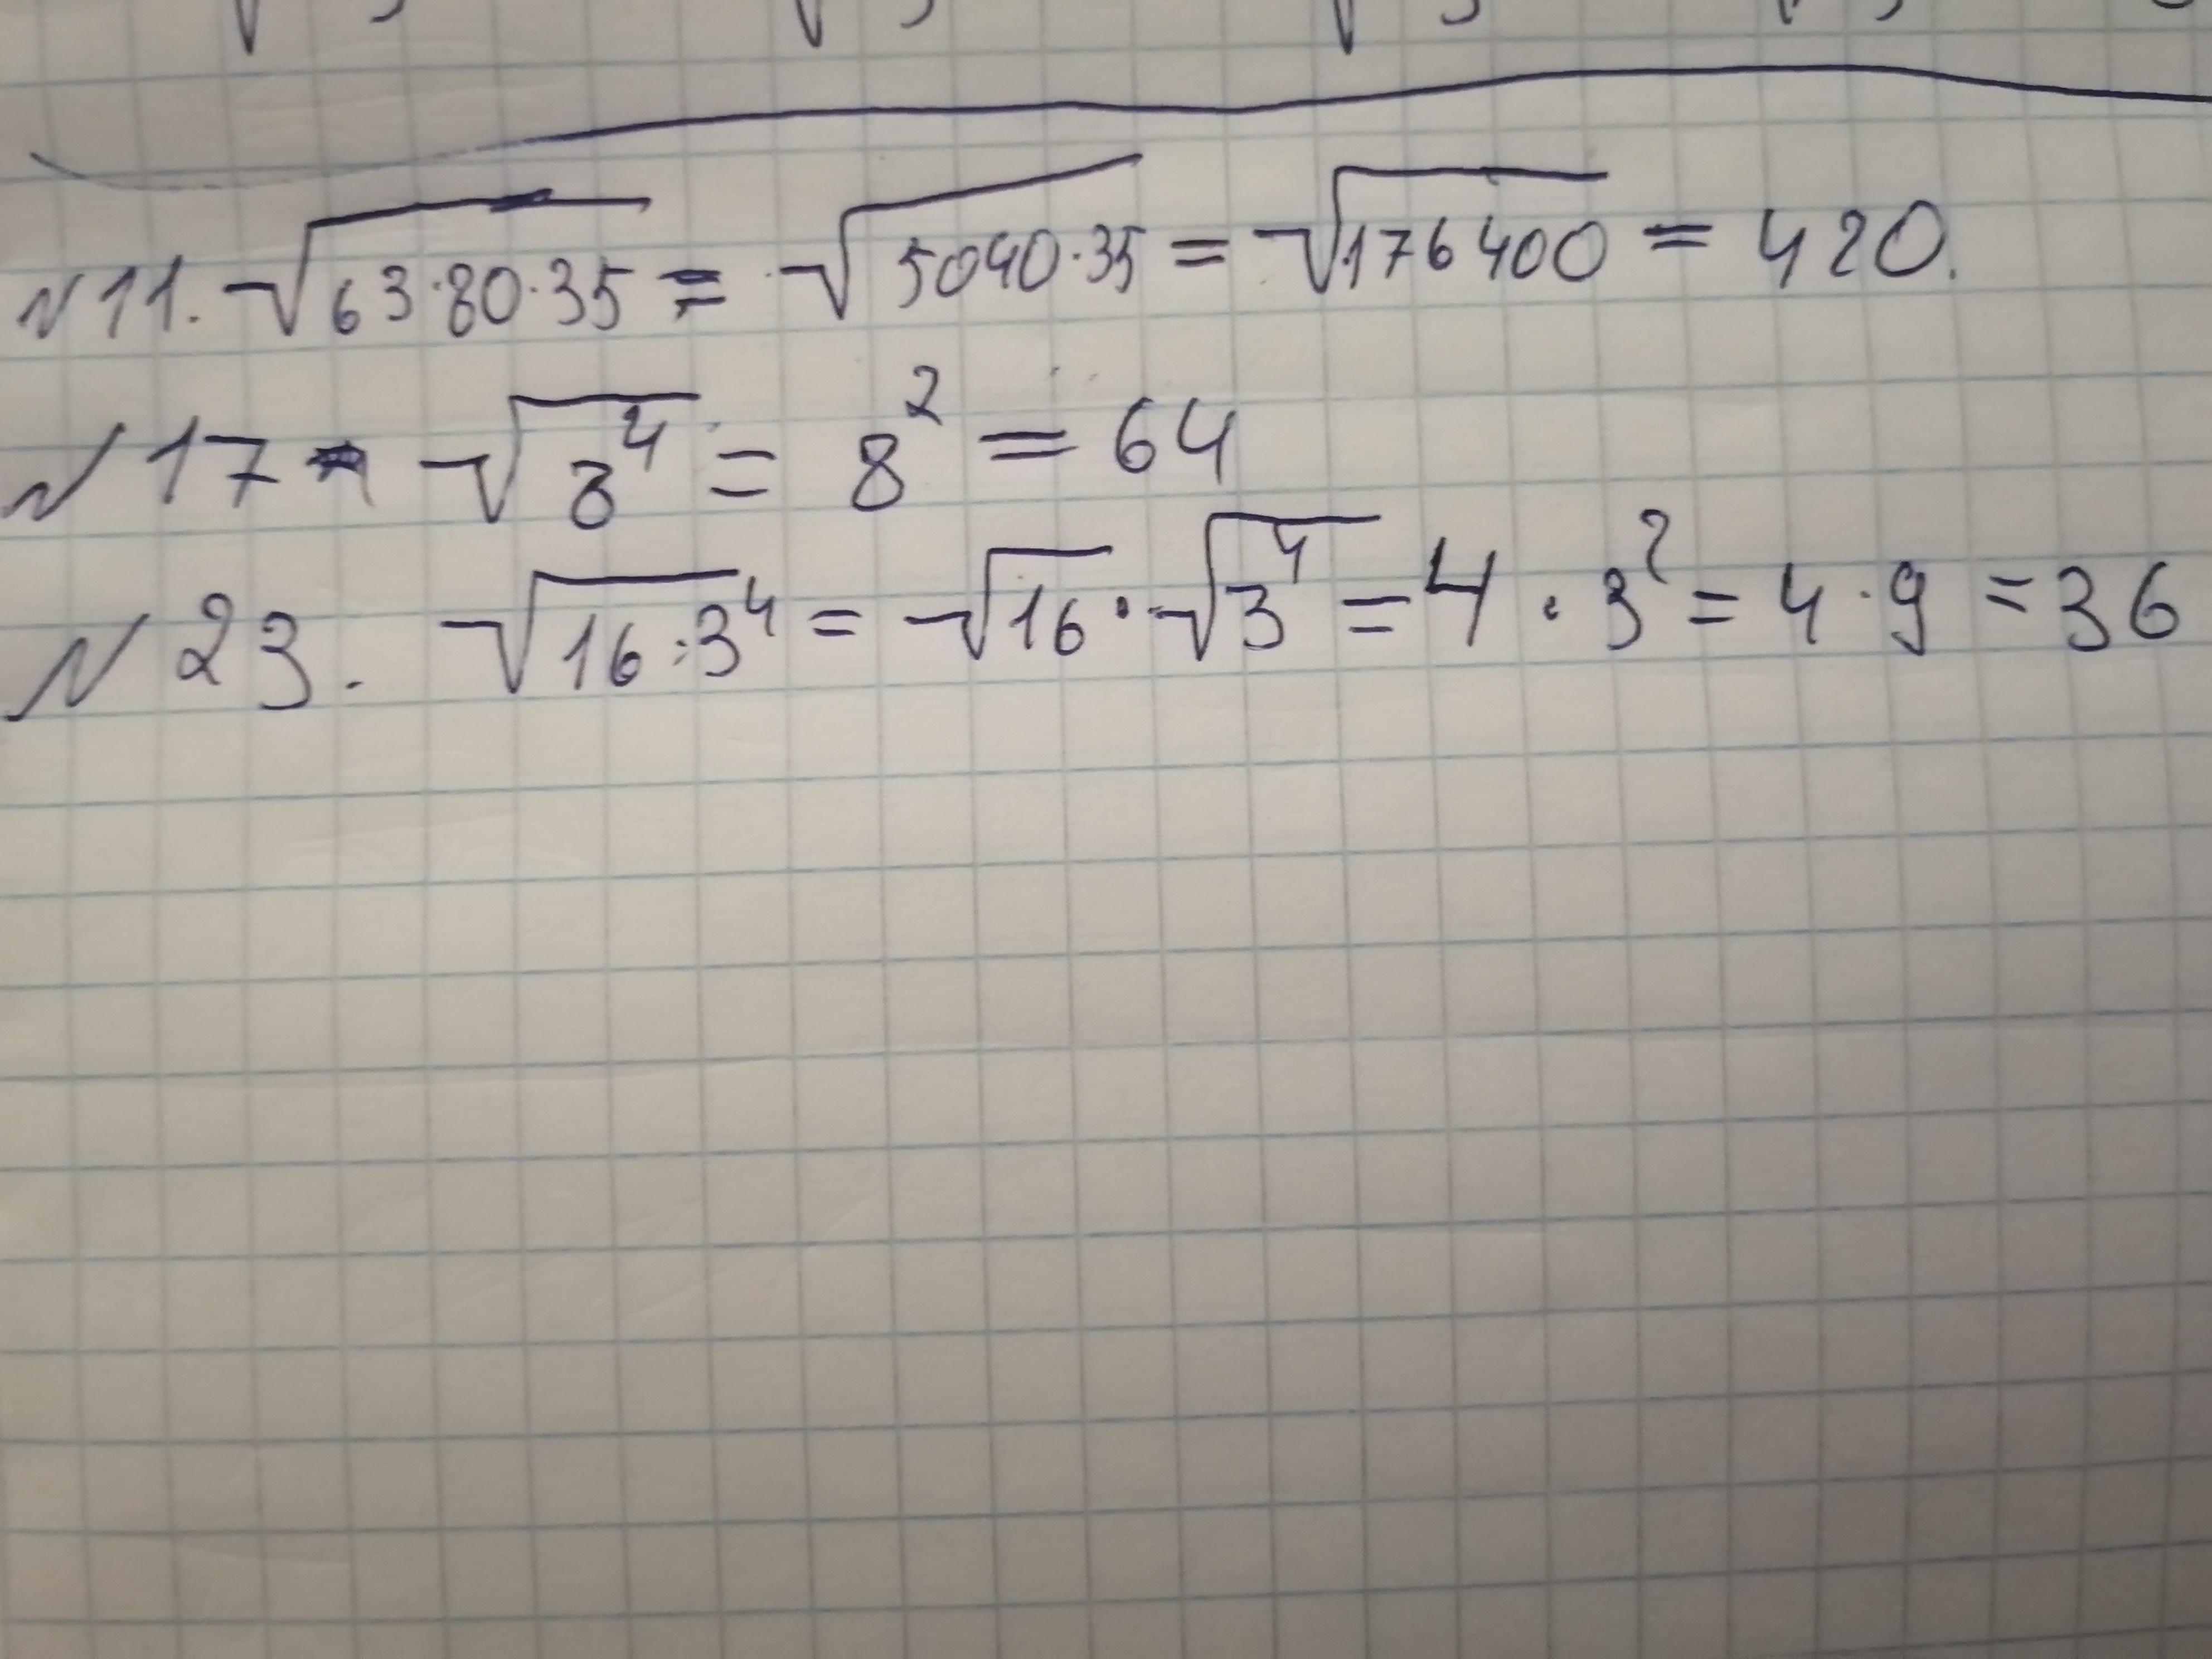 N 11. √63·80·35 = √5040·35 = √176400 = 420.
N 17 √8⁴ = 8² = 64
N 23. √16·3⁴ = √16 · √3⁴ = 4 · 3² = 4·9 = 36